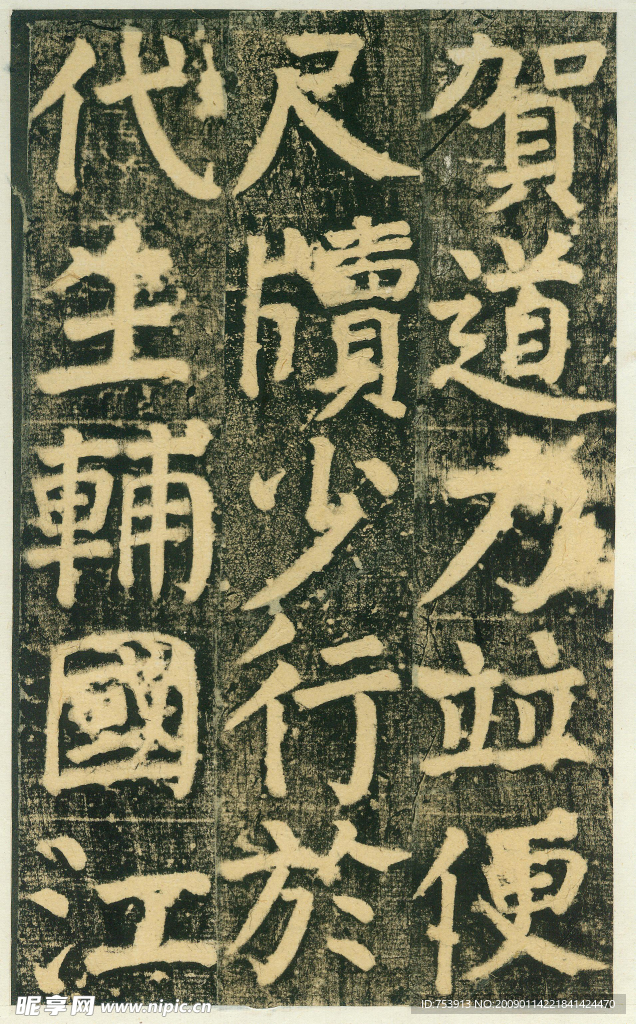 賀道力並便
尺牘少行於
代生輔國江
昵享网 www.nipic.cn
ID:753913 NO:20090114221841424470